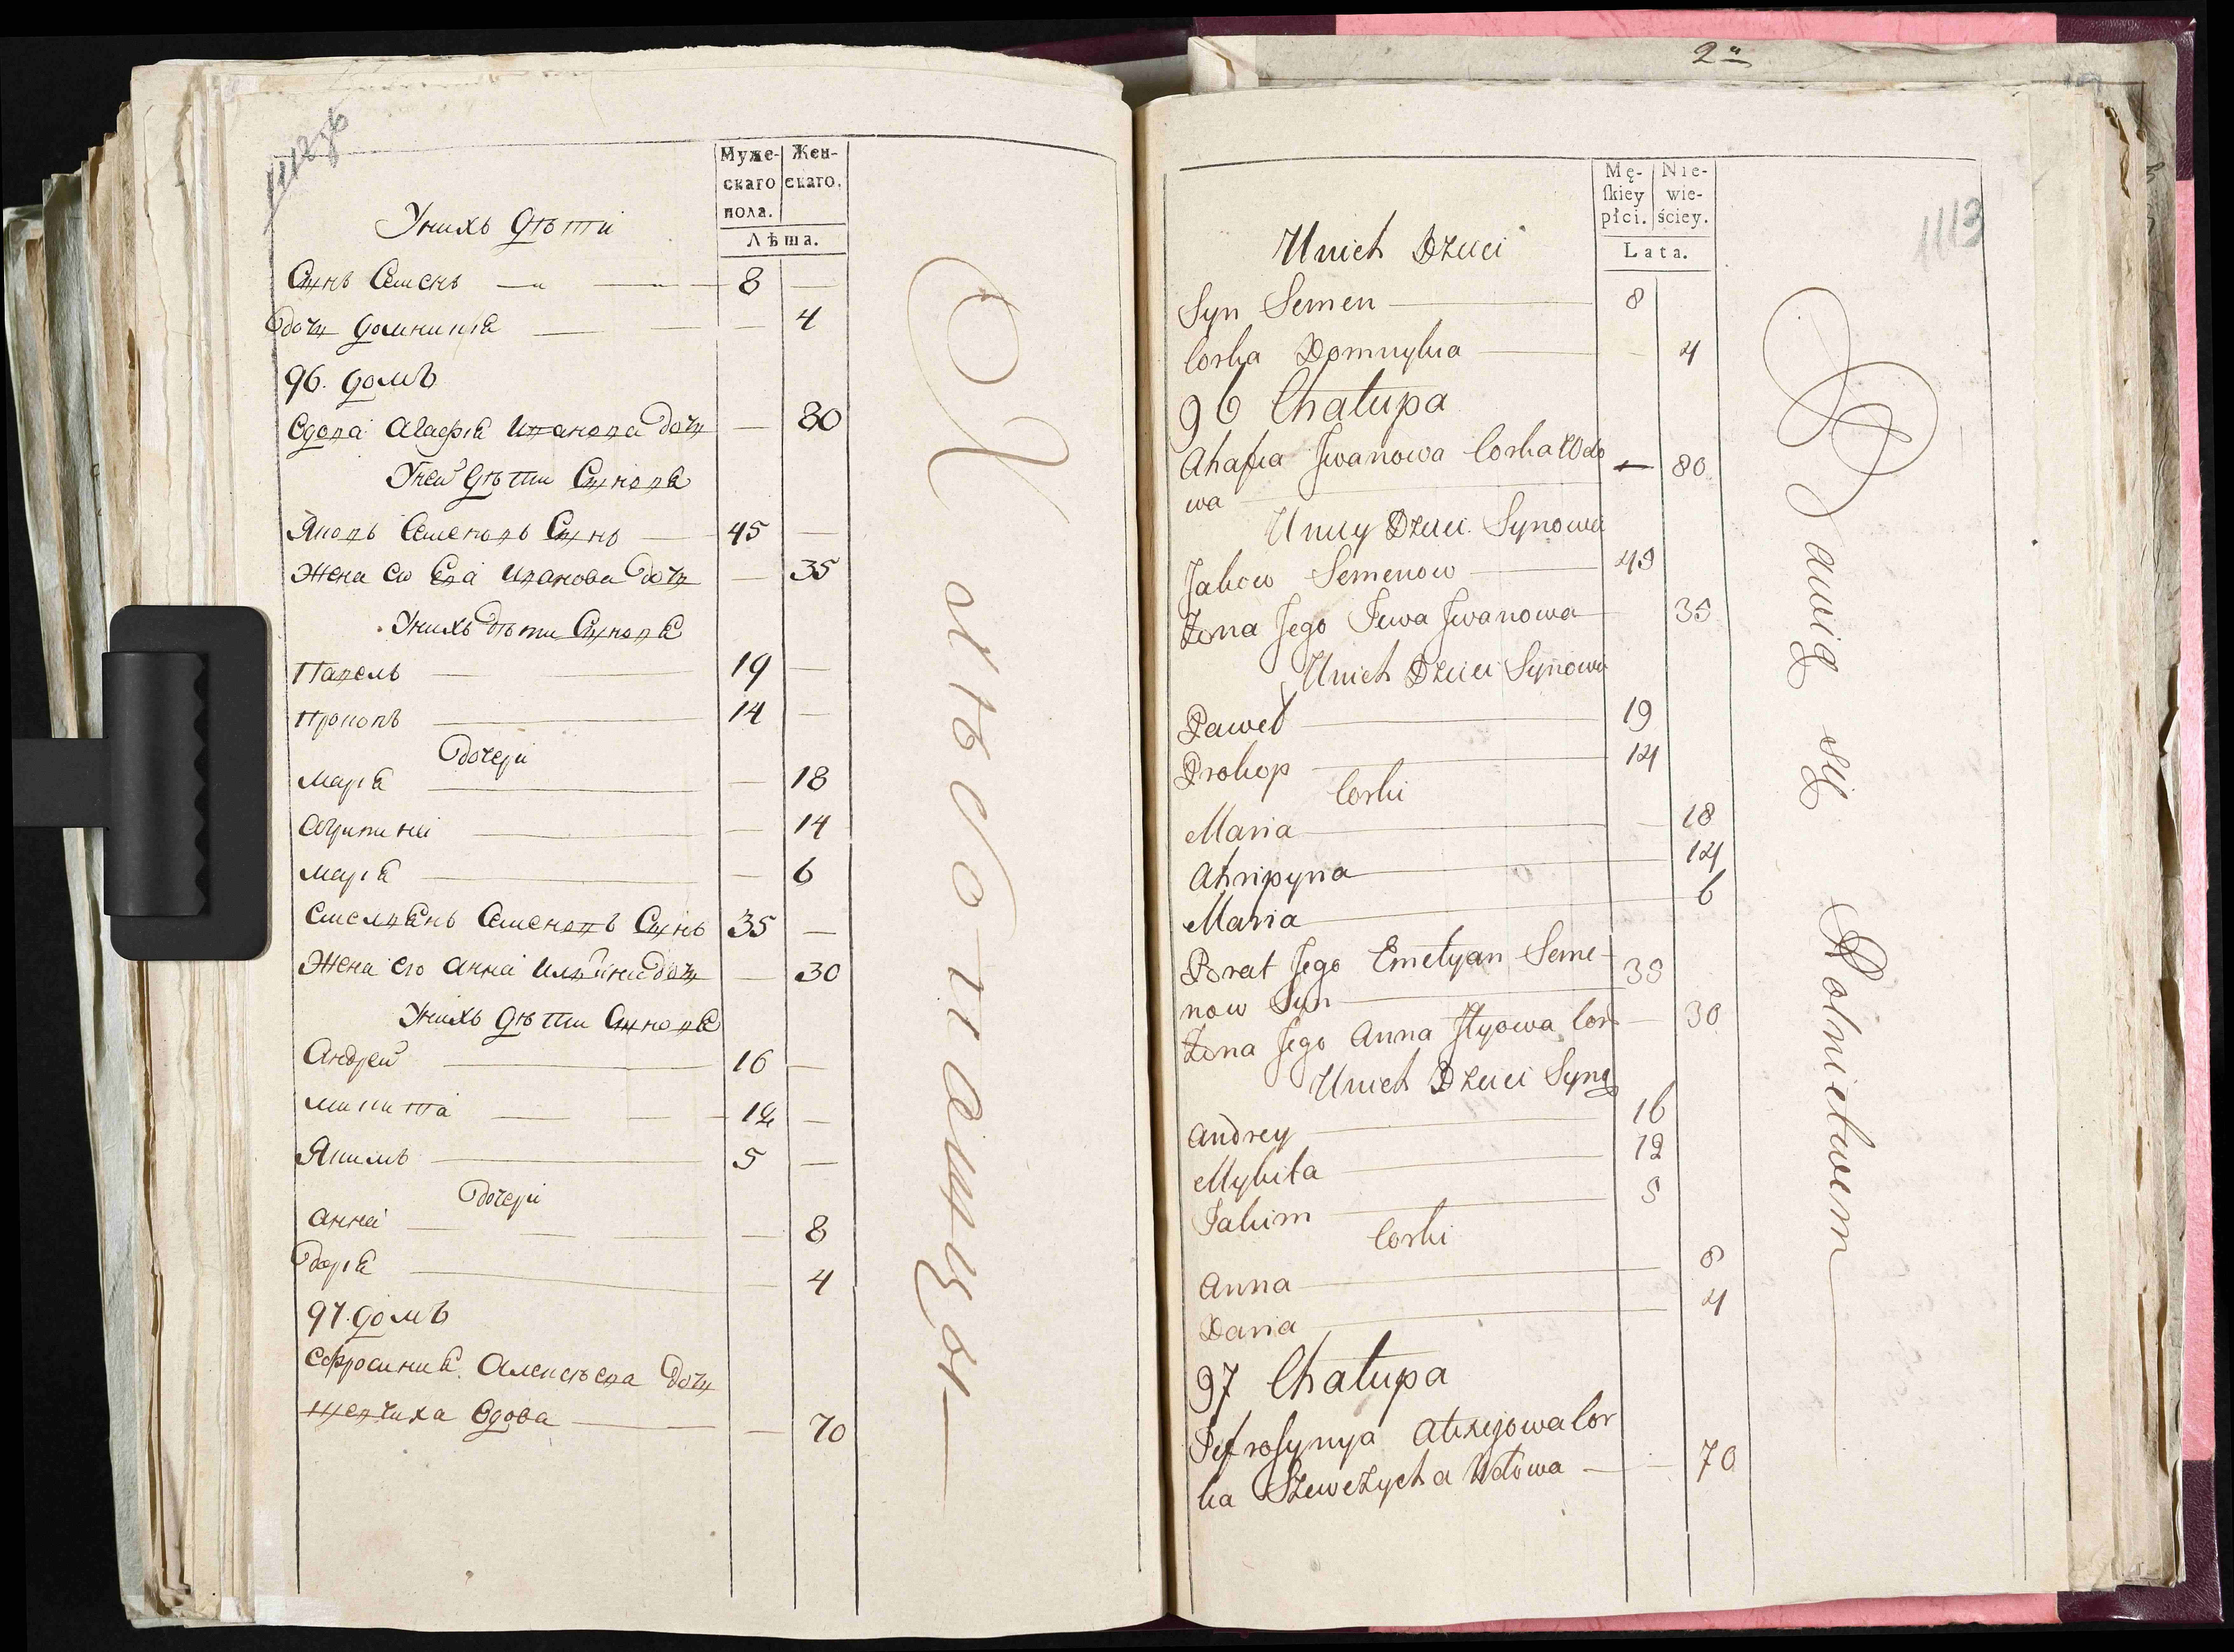 Муже- Жен-
скаго скаго.
пола.
Лѣта.
Унихъ Дѣти
Сынъ Семенъ 8
Дочь Домникія 4
96. домъ
Вдова Агафія Иванова Дочь 80
Уней Дѣти Сыновя
Яковъ Семеновъ Сынъ 45
Жена его Ева Иванова Дочь 35
Унихъ Дѣти Сыновя
Павелъ 19
Прокопъ 14
Дочери
Марія 18
Агрипина 14
Марія 6
Емелянъ Семеновъ Сынъ 35
Жена его Анна Ильина Дочь 30
Унихъ Дѣти Сыновя
Андрей 16
Микита 12
Якимъ 5
Дочери
Анна 8
Дарія 4
97. домъ
Ефросинія Алексѣева Дочь
Шевчиха Вдова 70
2
Mę- Nie-
ſkiey wie-
płci. ściey.
Lata.
1113
Unich Dzieci
Syn Semen 8
Corka Domnykia 4
96 Chałupa
Ahafia Jwanowa Corka Wdo
wa 80
Uniey Dzieci Synowie
Jakow Semenow 45
Zona Jego Jewa Jwanowa 35
Unich Dzieci Synowie
Paweł 19
Prokop 14
Corki
Maria 18
Ahripyna 14
Maria 6
Brat Jego Emelyan Seme-
now Syn 35
Zona Jego Anna Jlyowa Cor 30
Unich Dzieci Syno
Andrey 16
Mykita 12
Jakim 5
Corki
Anna 8
Daria 4
97 Chałupa
Jefrosynya Alexejowa Cor
ka Szewczycha Wdowa 70
Bawią się Rolnictwem